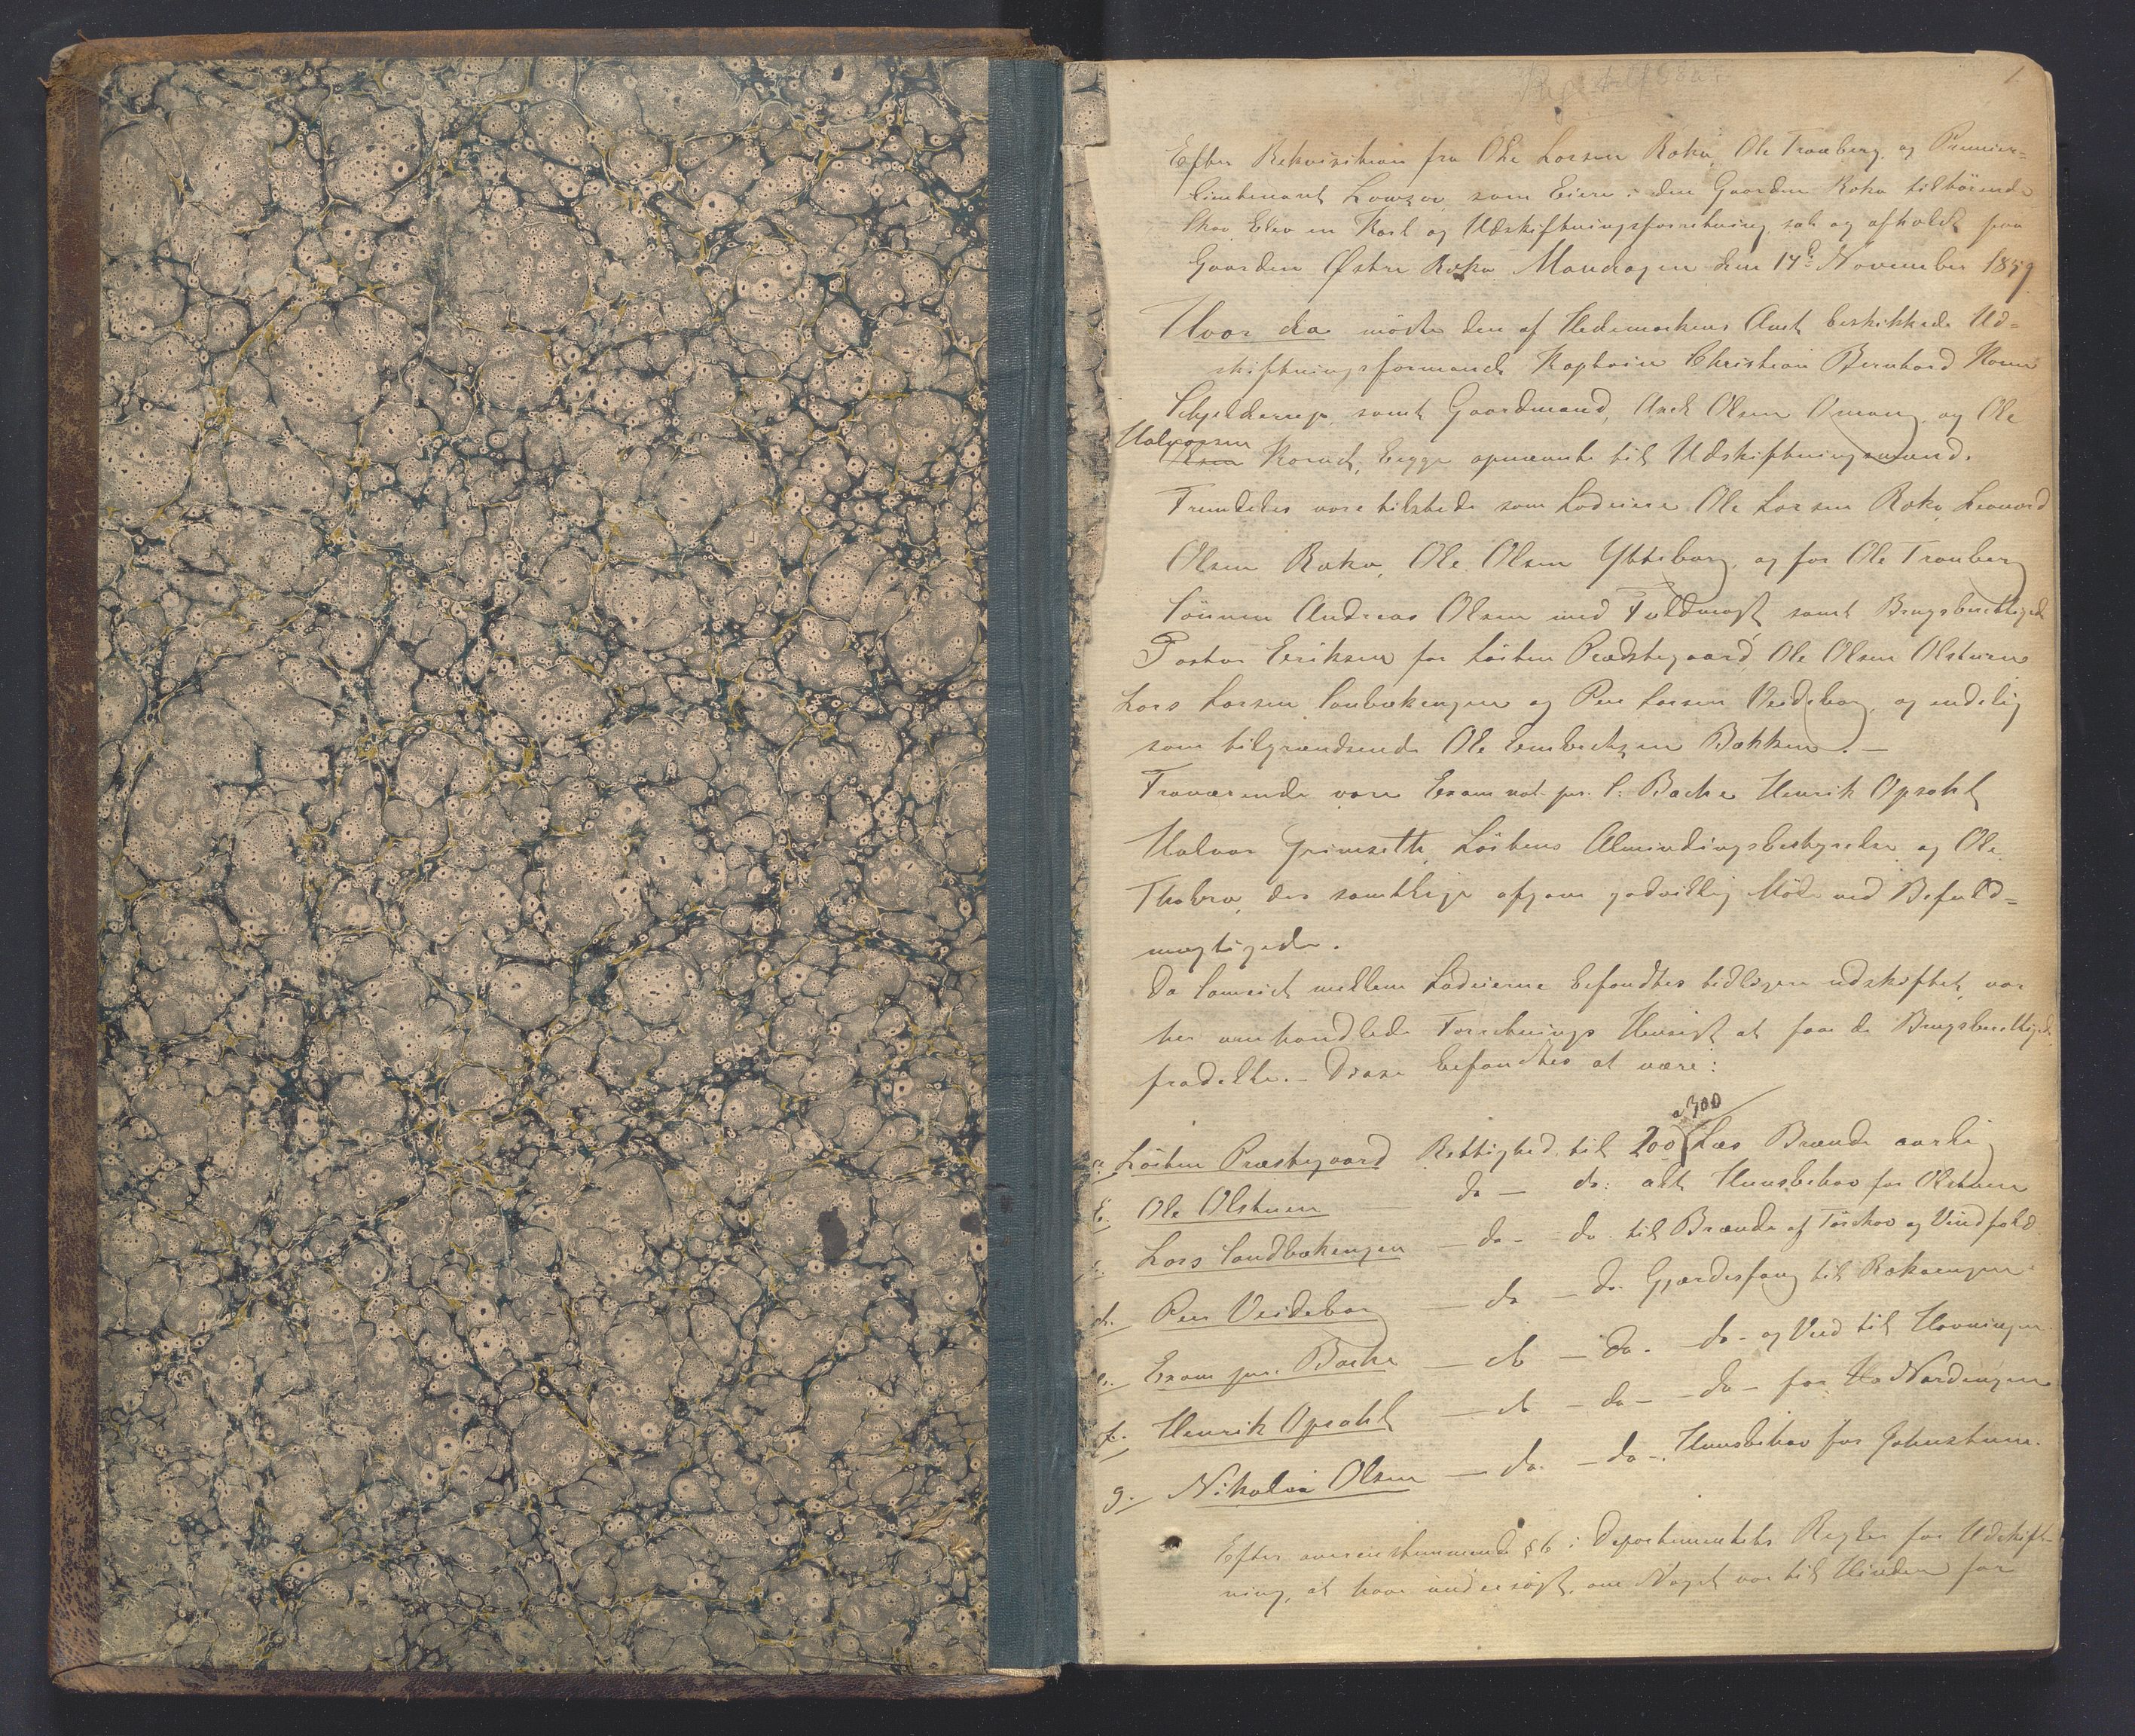 1.
Efter Rekvisition fra Ole Larsen Roko, Ole Tranberg og Premier-
lieutenant Lowzow som Eiere i den Gaarden Roko tilhørende
Skov blev en Kart og Udskiftningsforretning sat og afholdt paa
Gaarden Østre Roko Mandagen den 14de November 1859
Hvor da mødte den af Hedemarkens Amt beskikkede Ud=
skiftningsformand Kaptain Christian Bernhard Horne
Schjelderup, samt Gaardmænd, Amt Olsen Omang og Ole
Halvorsen
Olsen Korud, begge opnævnte til Udskiftningsmænd.
Fremdeles vare tilstede som Lodeiere Ole Larsen Roko, Leonard
Olsen Roko, Ole Olsen Ytteborg, og for Ole Tranberg
Sønnen Andreas Olsen med Fuldmagt samt Brugsberettigede
Pastor Eriksen for Løiten Prædstegaard, Ole Olsen Olstuen
Lars Larsen Sanbækengen og Per Larsen Veideborg, og endelig
som tilgrændsende Ole Embretsen Bakken. —
Fraværende vare Exam. jur. Bache Henrik Opsahl
Halvor Grimseth, Løitens Almindingsbestyrelse og Ole
Thobro, der samtlige afgave godvillig Møde ved Befuld=
mægtigede.
Da Sameiet mellem Lodeierne befandtes tidligere udskiftet, var
her omhandlede Forretnings Hensigt at faae de Brugsberettigede
fradelte. – Disse befandtes at være:
a 300
a. Løiten Præstegaard Rettighed til 200 Læs Brænde aarlig
b. Ole Olstuen — do — do: alt Huusbehov for Olstuen
c. Lars Sandbækengen — do - do. til Brænde af Tørskov og Vindfald
d. Per Veideborg — do — do. Gjærdesfang til Rokoengen
e. Exam jur. Bache — do — do. — do - og Ved til Havningen
f. Henrik Opsahl — do — do — do — for Ho Nordengen
g. Nikolai Olsen — do. — do -. Huusbehov for Johnstuen.
Efter overensstemmende § 6 i Departementets Regler for Udskift-
ning, at have undersøgt, om Noget var til Hinder for